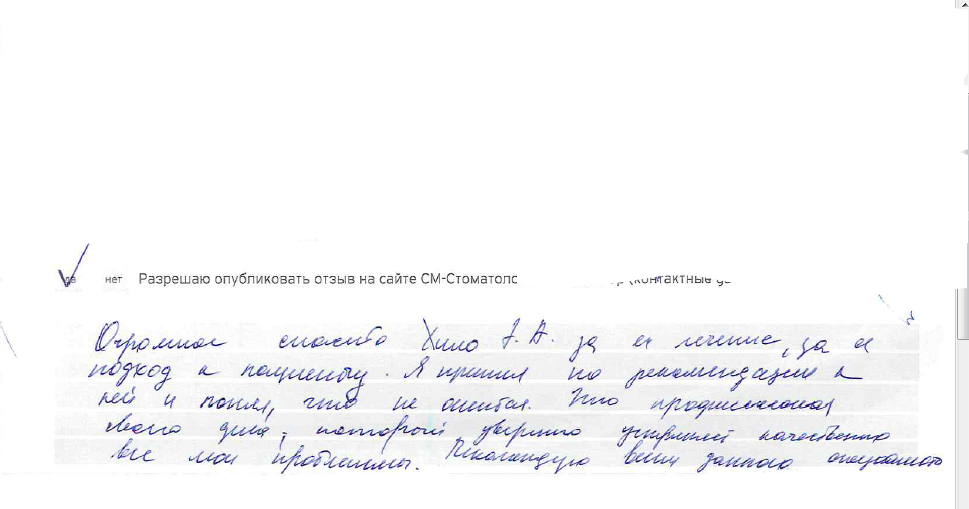 да нет Разрешаю опубликовать отзыв на сайте СМ-Стоматоло (контактные
Огромное спасибо Хило А. за ее лечение, за ее
подход к пациенту. Я пришел по рекомендации к
ней и понял, что не ошибся. Это профессионал
своего дела, который уверенно устраняет качественно
все мои проблемы. Рекомендую всем данного специалиста